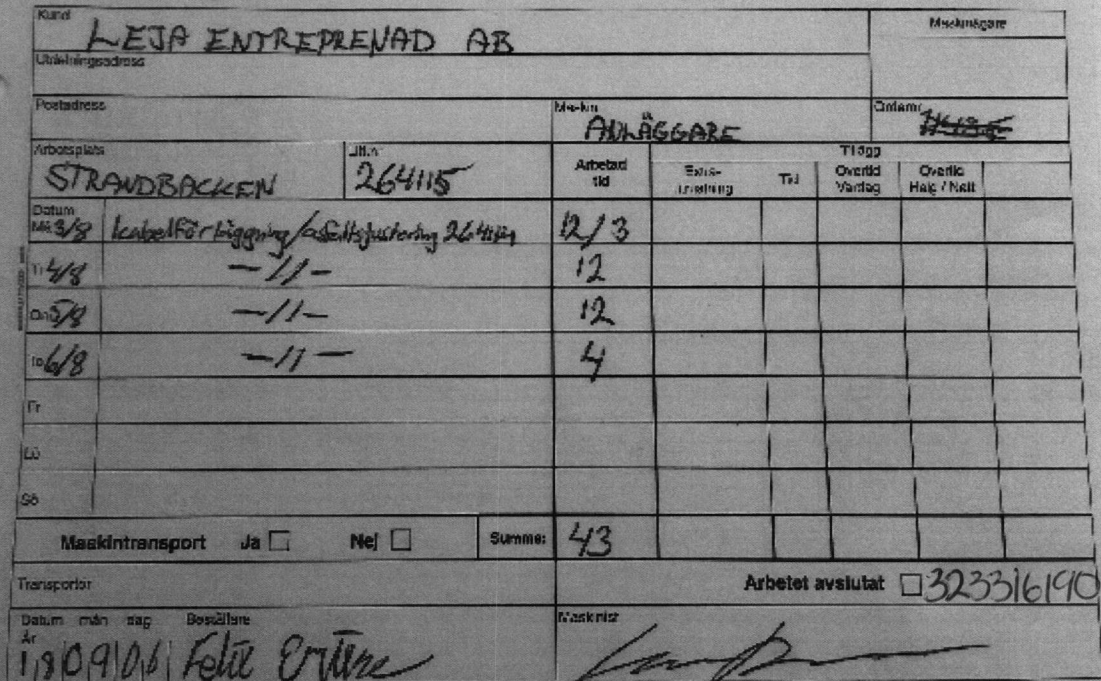 Kund
LEJA ENTREPRENAD AB
Maskinägare
Uträkningsadress
Postadress
Maskin
ANLÄGGARE
Ordernr
Arbetsplats
STRANDBACKEN
Litt.nr
264115
Arbetad tid
Tillägg
Extra-utrustning Tid Övertid Vardag Övertid Helg / Natt
Datum
Må 3/8 kabelförläggning/asfaltsjustering 12/3
Ti 4/8 -//- 12
On 5/8 -//- 12
To 6/8 -//- 4
Fr
Lö
Sö
Maskintransport Ja Nej Summa: 43
Transportör
Arbetet avslutat 323316190
Datum mån dag Beställare
År
18 09 06 Felix
Maskinist